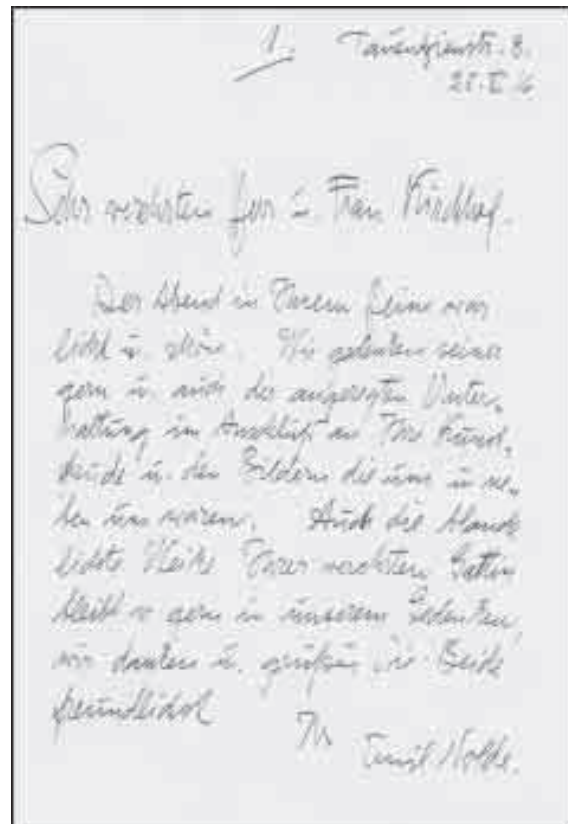 1. Tauentzienstr. 8.
Sehr verehrter Herr u. Frau Kirchhoff.
Der Abend in Ihrem Heim war
licht u. schön. Wir gedenken seiner
gern u. auch der angeregten Unter-
haltung im Anschluß an Ihre Kunst-
u. den Bildern die um u. ne-
ben uns waren. Auch die blaue
Ihrer verehrten Gattin
bleibt so gern in unserem Gedenken,
wir danken u. grüßen Sie Beide
freundlichst
Ihr
Emil Nolde.